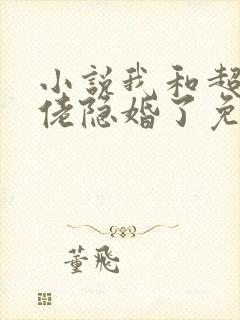 小说我和超
佬隐婚了免
董飛